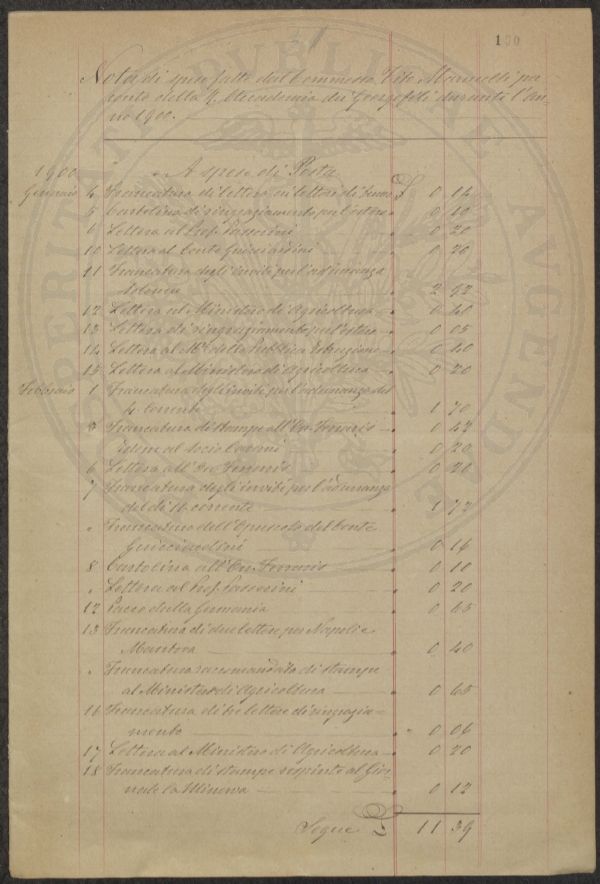 130
PROSPERITATI PUBLICAE AUGENDAE
Nota di spese fatte dal Commesso Tito Marucelli per
conto della R. Accademia dei Georgofili durante l'an-
no 1900.
1900 A spese di Posta
Gennaio 4 Francatura di lettera £ 0 16
5 Cartolina di ringraziamento per l'estero " 0 10
6 Lettera al Prof. Passerini " 0 20
10 Lettera al Conte Guicciardini " 0 20
11 Francatura degli inviti per l'adunanza
solenne " 2 92
12 Lettera al Ministero di Agricoltura " 0 40
13 Lettera di ringraziamento per l'estero " 0 05
14 Lettera al Mo. della Pubblica Istruzione " 0 40
15 Lettera al Ministero di Agricoltura " 0 20
Febbraio 1 Francatura degli inviti per l'adunanza del
4 corrente " 1 70
3 Francatura di stampe all'On. Ferraris " 0 42
Idem al socio " 0 20
6 Lettera all'On. Ferraris " 0 20
7 Francatura degli inviti per l'adunanza
del dì 11 corrente " 1 72
" Francatura dell'Opuscolo del Conte
Guicciardini " 0 16
8 Cartolina all'On. Ferraris " 0 10
" Lettera al Prof. Passerini " 0 20
12 Pacco dalla Germania " 0 65
13 Francatura di due lettere per Napoli e
Mantova " 0 40
" Francatura raccomandata di stampe
al Ministero di Agricoltura " 0 65
16 Francatura di tre lettere di ringrazia-
mento " 0 06
17 Lettera al Ministero di Agricoltura " 0 20
18 Francatura di stampe respinte al Gior-
nale la Minerva " 0 12
Segue £ 11 39